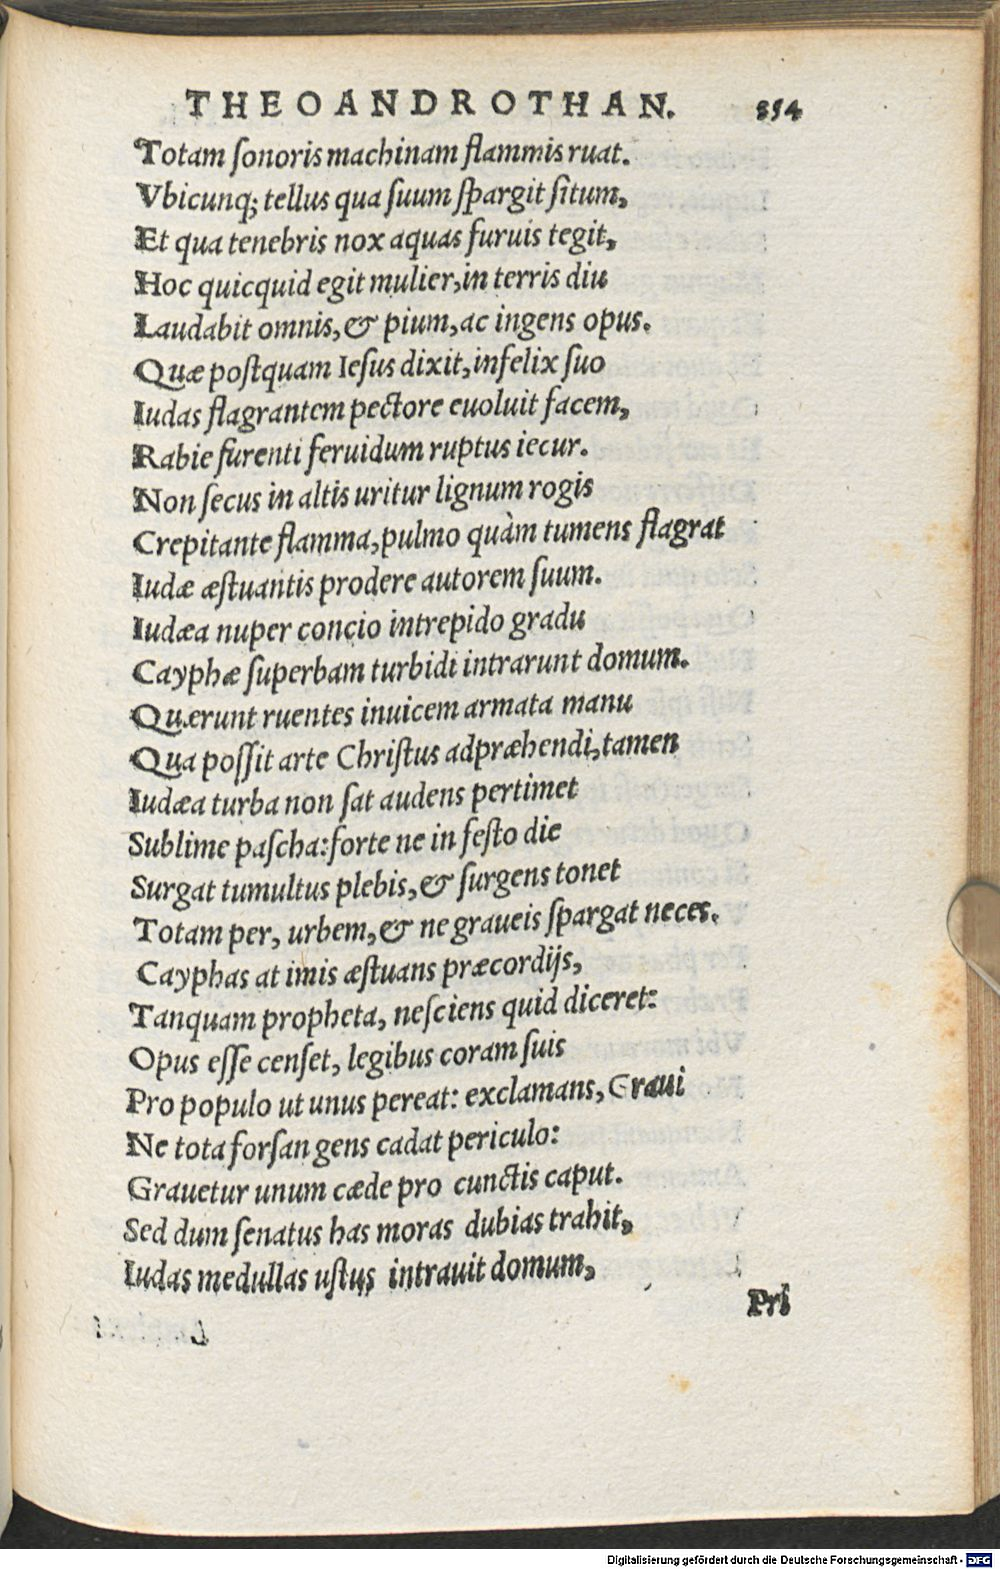 THEOANDROTHAN. 854
Totam ſonoris machinam flammis ruat.
Vbicunq; tellus qua ſuum ſpargit ſitum,
Et qua tenebris nox aquas furuis tegit,
Hoc quicquid egit mulier, in terris diu
Laudabit omnis, & pium, ac ingens opus.
Quæ poſtquam Ieſus dixit, infelix ſuo
Iudas flagrantem pectore euoluit facem,
Rabie furenti feruidum ruptus iecur.
Non ſecus in altis uritur lignum rogis
Crepitante flamma, pulmo quàm tumens flagrat
Iudæ æſtuantis prodere autorem ſuum.
Iudæa nuper concio intrepido gradu
Cayphæ ſuperbam turbidi intrarunt domum.
Quærunt ruentes inuicem armata manu
Qua poſſit arte Chriſtus adpræhendi, tamen
Iudæa turba non ſat audens pertimet
Sublime paſcha: forte ne in feſto die
Surgat tumultus plebis, & ſurgens tonet
Totam per, urbem, & ne graueis ſpargat neces.
Cayphas at imis æſtuans præcordijs,
Tanquam propheta, neſciens quid diceret:
Opus eſſe cenſet, legibus coram ſuis
Pro populo ut unus pereat: exclamans, Graui
Ne tota forſan gens cadat periculo:
Grauetur unum cæde pro cunctis caput.
Sed dum ſenatus has moras dubias trahit,
Iudas medullas uſtus intrauit domum,
Pri
Digitalisierung gefördert durch die Deutsche Forschungsgemeinschaft - DFG